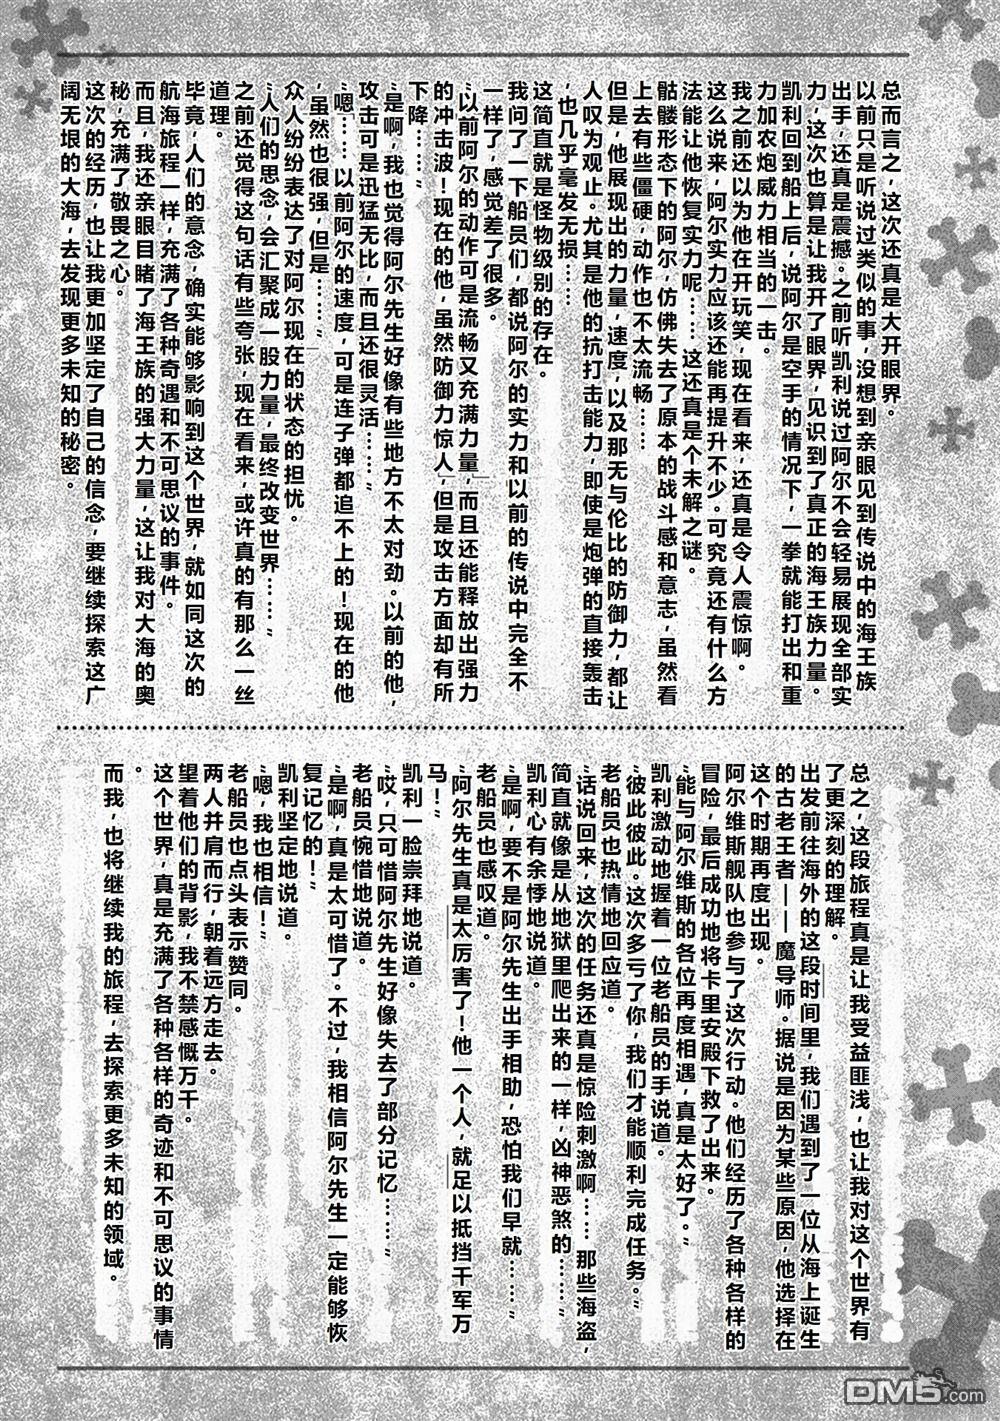 总而言之，这次还真是大开眼界。
以前只是听说过类似的事，没想到亲眼见到传说中的海王族
出手，还真是震撼。之前听凯利说过阿尔不会轻易展现全部实
力，这次也算是让我开了眼界，见识到了真正的海王族力量。
凯利回到船上后，说阿尔是空手的情况下，一拳就能打出和重
力加农炮威力相当的一击。
我之前还以为他在开玩笑，现在看来，还真是令人震惊啊。
这么说来，阿尔实力应该还能再提升不少。可究竟还有什么方
法能让他恢复实力呢……这还真是个未解之谜。
骷髅形态下的阿尔，仿佛失去了原本的战斗感和意志，虽然看
上去有些僵硬，动作也不太流畅……
但是，他展现出的力量，速度，以及那无与伦比的防御力，都让
人叹为观止。尤其是他的抗打击能力，即使是炮弹的直接轰击
，也几乎毫发无损……
这简直就是怪物级别的存在。
我问了一下船员们，都说阿尔的实力和以前的传说中完全不
一样了，感觉差了很多。
“以前阿尔的动作可是流畅又充满力量，而且还能释放出强力
的冲击波！现在的他，虽然防御力惊人，但是攻击方面却有所
下降……”
“是啊，我也觉得阿尔先生好像有些地方不太对劲。以前的他，
攻击可是迅猛无比，而且还很灵活……”
“嗯……以前阿尔的速度，可是连子弹都追不上的！现在的他
，虽然也很强，但是……”
众人纷纷表达了对阿尔现在的状态的担忧。
“人们的思念，会汇聚成一股力量，最终改变世界……”
之前还觉得这句话有些夸张，现在看来，或许真的有那么一丝
道理。
毕竟，人们的意念，确实能够影响到这个世界，就如同这次的
航海旅程一样，充满了各种奇遇和不可思议的事件。
而且，我还亲眼目睹了海王族的强大力量，这让我对大海的奥
秘，充满了敬畏之心。
这次的经历，也让我更加坚定了自己的信念，要继续探索这广
阔无垠的大海，去发现更多未知的秘密。
总之，这段旅程真是让我受益匪浅，也让我对这个世界有
了更深刻的理解。
出发前往海外的这段时间里，我们遇到了一位从海上诞生
的古老王者——魔导师。据说是因为某些原因，他选择在
这个时期再度出现。
阿尔维斯舰队也参与了这次行动。他们经历了各种各样的
冒险，最后成功地将卡里安殿下救了出来。
“能与阿尔维斯的各位再度相遇，真是太好了。”
凯利激动地握着一位老船员的手说道。
“彼此彼此。这次多亏了你，我们才能顺利完成任务。”
老船员也热情地回应道。
“话说回来，这次的任务还真是惊险刺激啊……那些海盗，
简直就像是从地狱里爬出来的一样，凶神恶煞的……”
凯利心有余悸地说道。
“是啊，要不是阿尔先生出手相助，恐怕我们早就……”
老船员也感叹道。
“阿尔先生真是太厉害了！他一个人，就足以抵挡千军万
马！”
凯利一脸崇拜地说道。
“哎，只可惜阿尔先生好像失去了部分记忆……”
老船员惋惜地说道。
“是啊，真是太可惜了。不过，我相信阿尔先生一定能够恢
复记忆的！”
凯利坚定地说道。
“嗯，我也相信！”
老船员也点头表示赞同。
两人并肩而行，朝着远方走去。
望着他们的背影，我不禁感慨万千。
这个世界，真是充满了各种各样的奇迹和不可思议的事情
。
而我，也将继续我的旅程，去探索更多未知的领域。
DM5.com